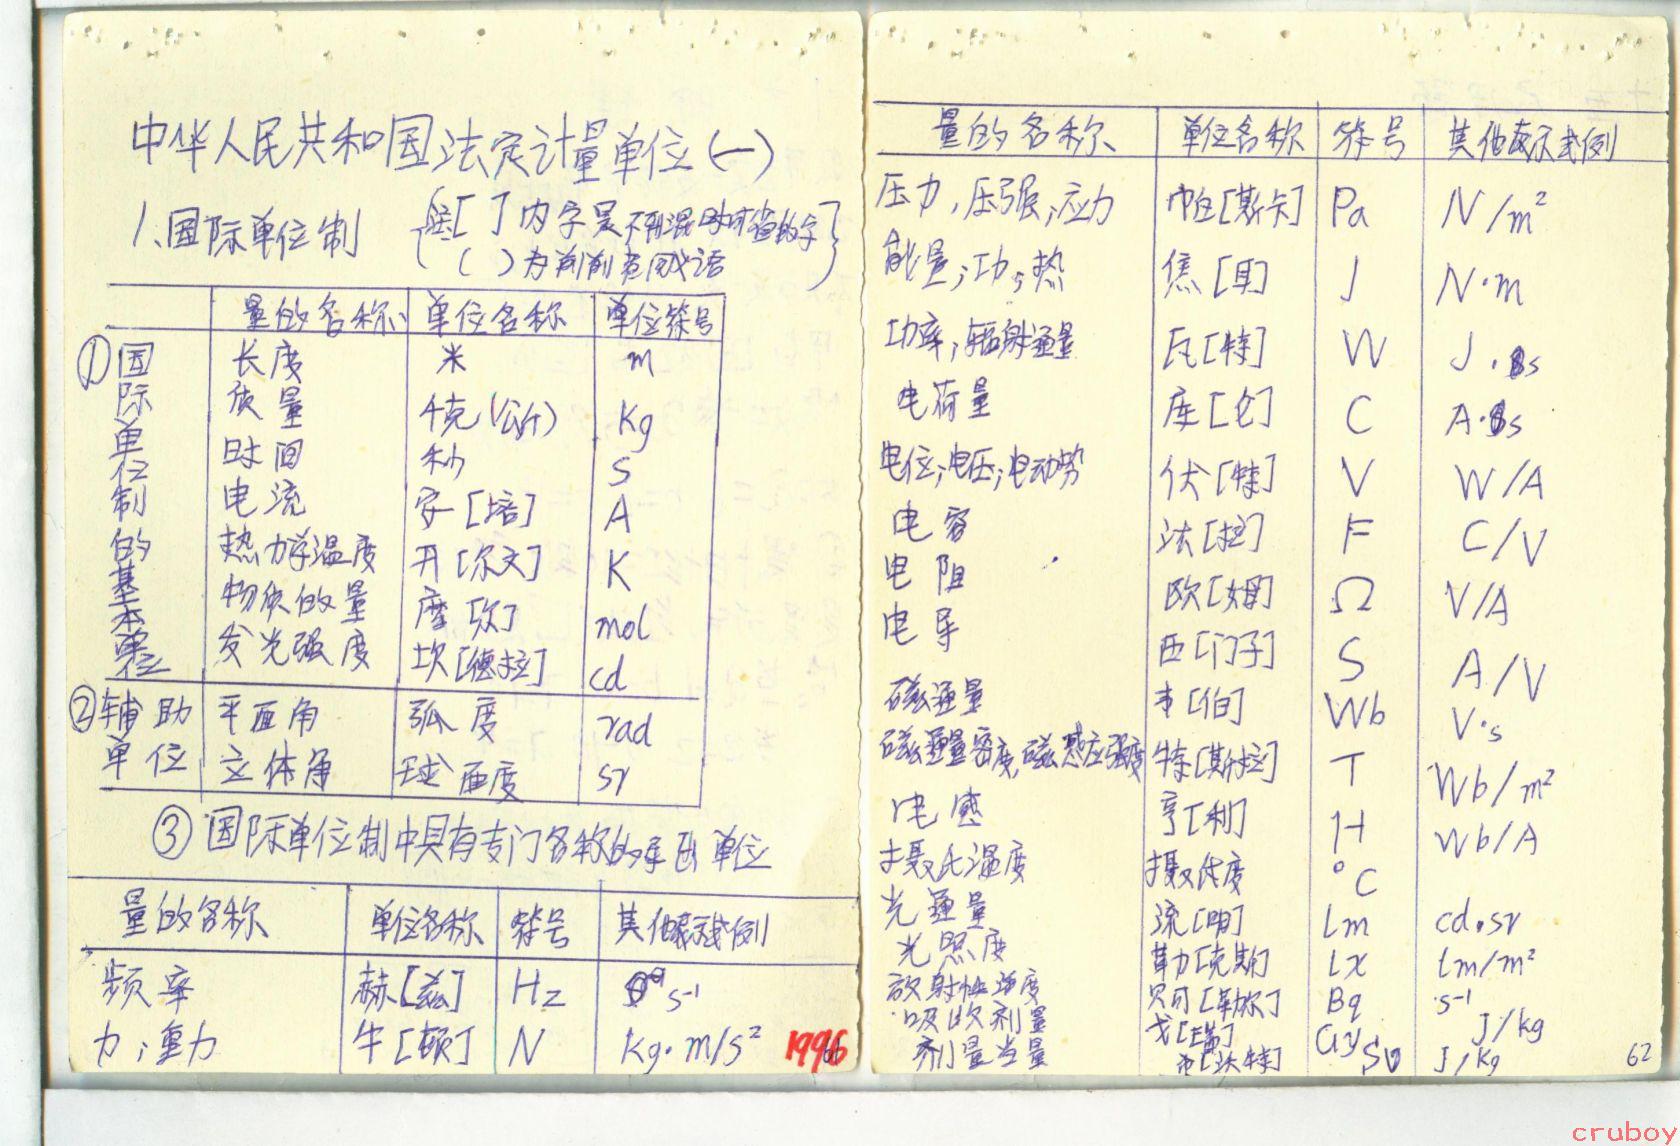 中华人民共和国法定计量单位(一)
1.国际单位制 {注[ ]内字是不引混时可省的字
( )为前者同义语}
量的名称 单位名称 单位符号
①国际单位制的基本单位
长度 米 m
质量 千克(公斤) Kg
时间 秒 S
电流 安[培] A
热力学温度 开[尔文] K
物质的量 摩[尔] mol
发光强度 坎[德拉] cd
②辅助单位
平面角 弧度 rad
立体角 球面度 sr
③国际单位制中具有专门名称的导出单位
量的名称 单位名称 符号 其他表示式例
频率 赫[兹] Hz s⁻¹
力;重力 牛[顿] N Kg·m/s²
1996
量的名称 单位名称 符号 其他表示式例
压力,压强;应力 帕[斯卡] Pa N/m²
能量;功;热 焦[耳] J N·m
功率;辐射通量 瓦[特] W J.s
电荷量 库[仑] C A·s
电位;电压;电动势 伏[特] V W/A
电容 法[拉] F C/V
电阻 欧[姆] Ω V/A
电导 西[门子] S A/V
磁通量 韦[伯] Wb V·s
磁通量密度,磁感应强度 特[斯拉] T Wb/m²
电感 亨[利] H Wb/A
摄氏温度 摄氏度 °C
光通量 流[明] Lm cd.sr
光照度 勒[克斯] Lx lm/m²
放射性活度 贝可[勒尔] Bq s⁻¹
吸收剂量 戈[瑞] Gy J/kg
剂量当量 希[沃特] Sv J/Kg
62
cruboy